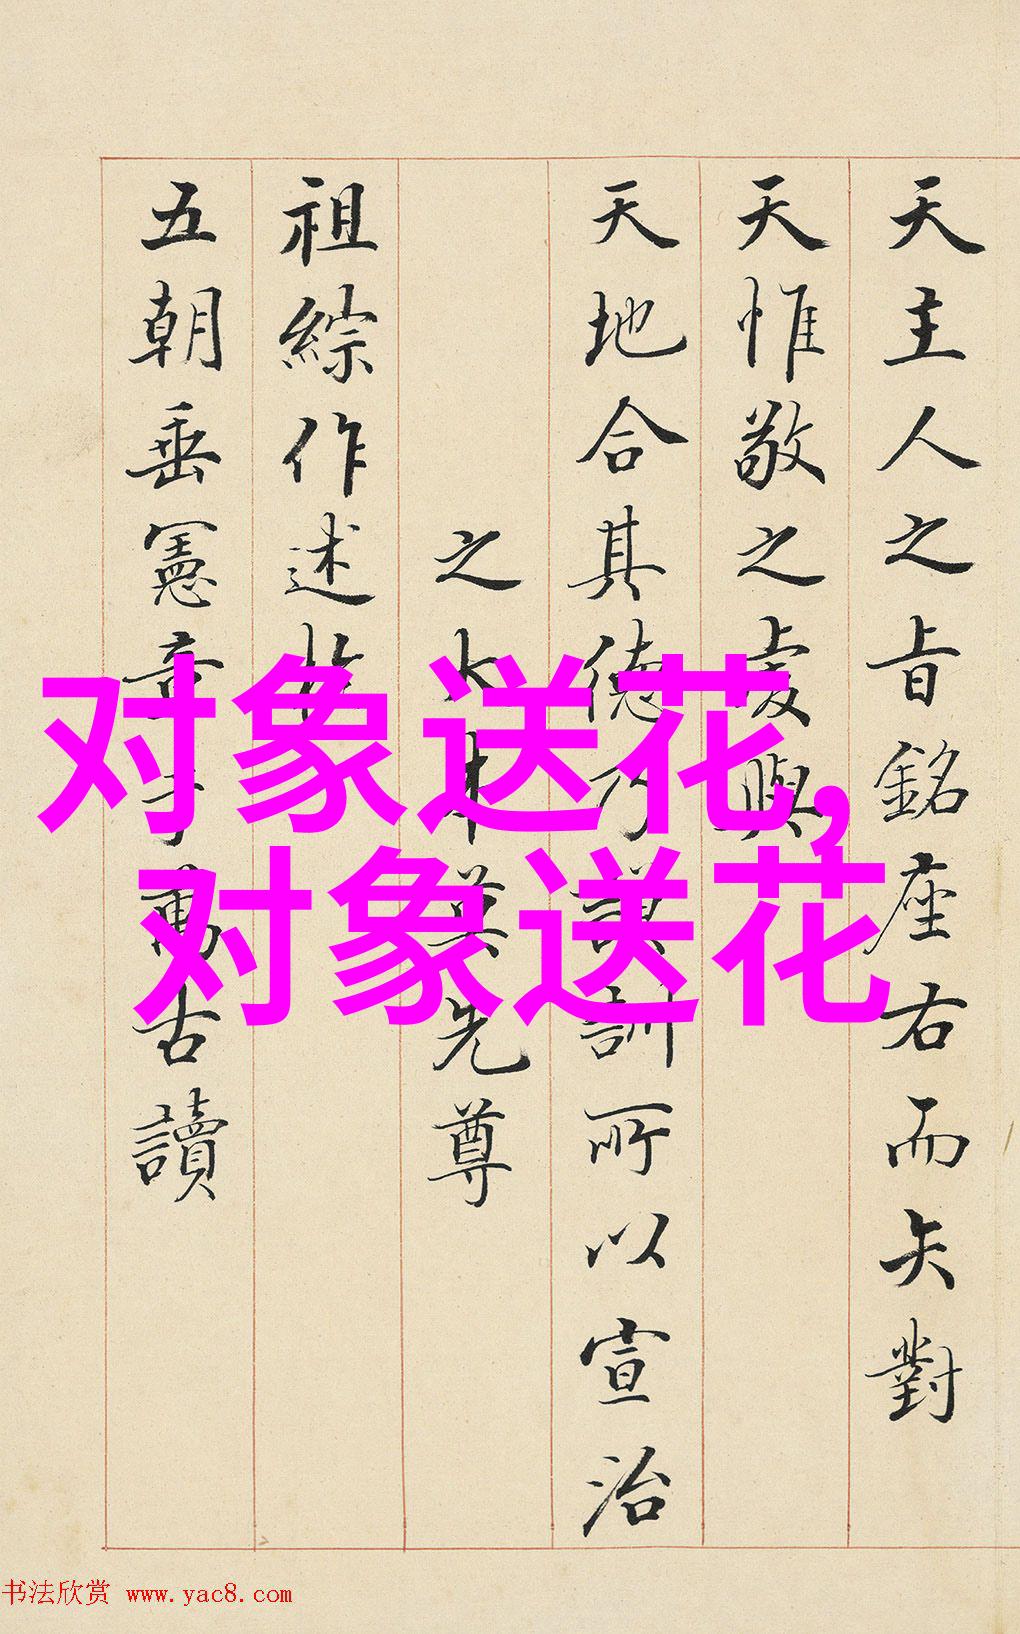 天主人之旨銘座右而矢對
天惟敬之虔與
天地合其德乃謨訓所以宣治
之大本莫先尊
祖綜作述於
五朝垂憲章於萬古讀
对象送花,
对象送花
书法欣赏 www.yac8.com